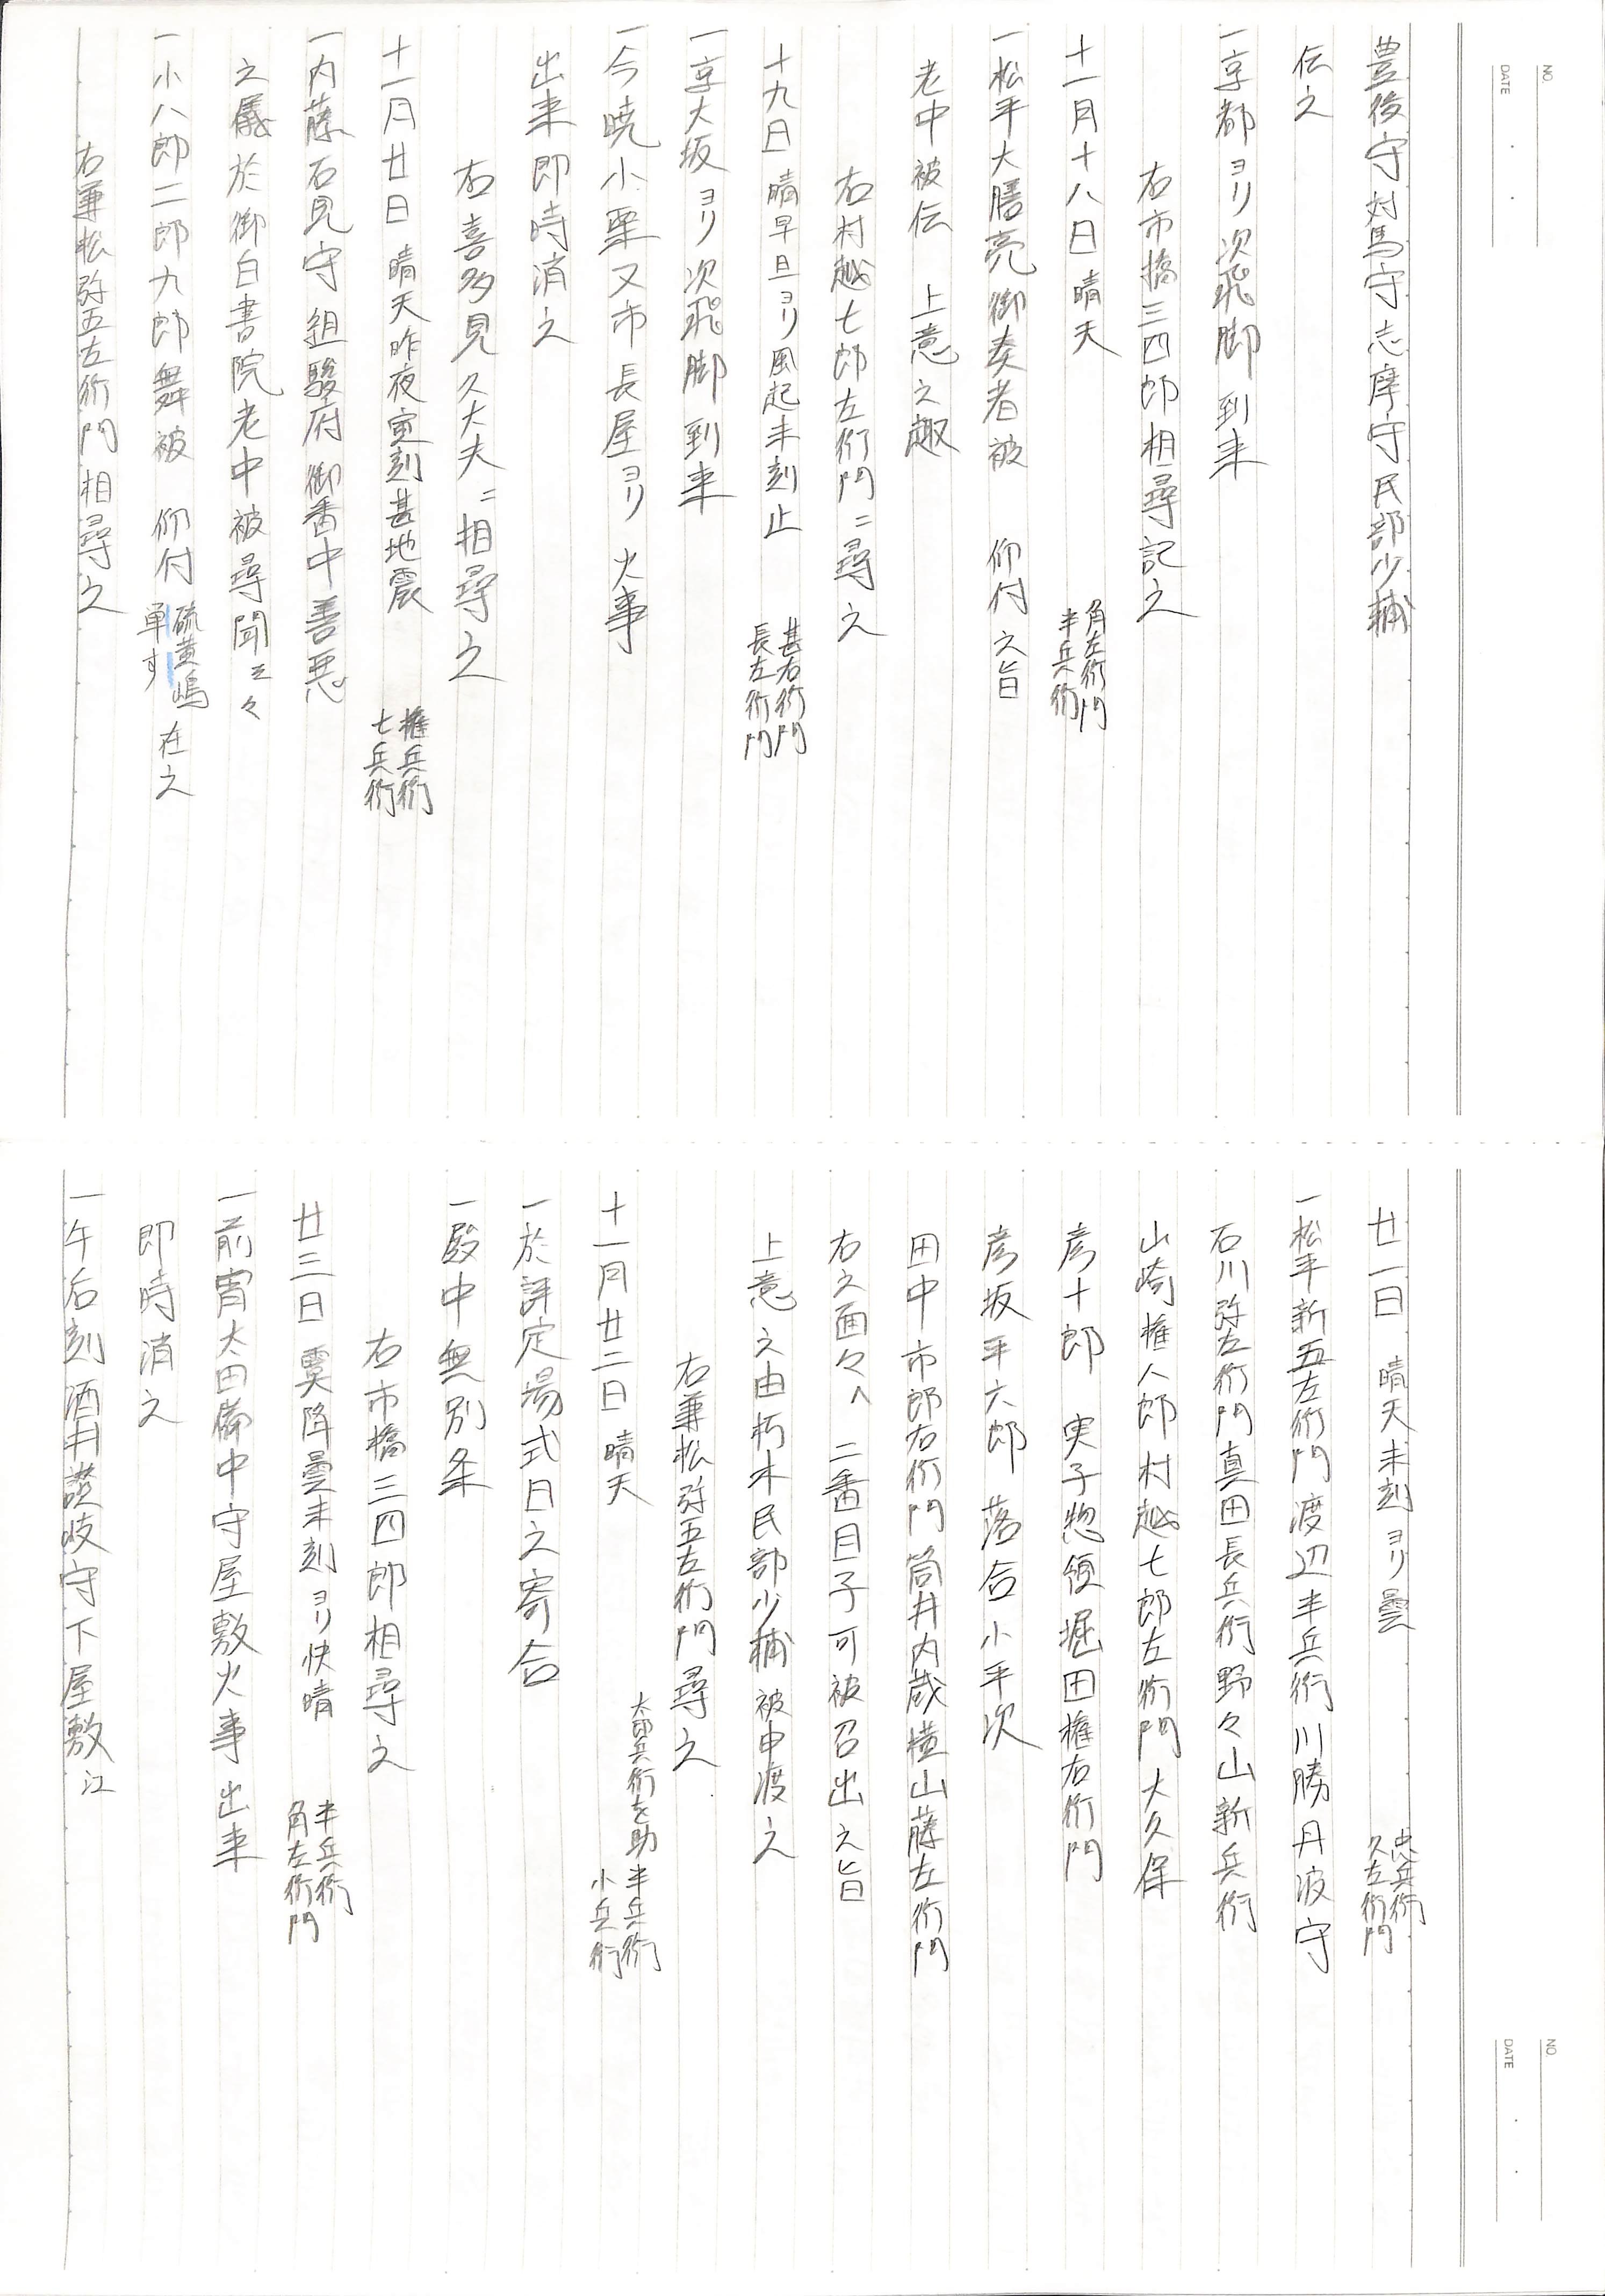 豊後守対馬守志摩守民部少輔
伝之
一京都ヨリ次飛脚到来
右市橋三四郎相尋記之
十一月十八日 晴天 角左衛門 半兵衛
一松平大膳亮御奏者被 仰付之旨
老中被伝 上意之趣
右村越七郎左衛門ニ尋之
十九日 晴早旦ヨリ風起未刻止 甚右衛門 長左衛門
一京大坂ヨリ次飛脚到来
一今暁小栗又市長屋ヨリ火事
出来即時消之
右喜多見久大夫ニ相尋之
十一月廿日 晴天昨夜寅刻甚地震 権兵衛 七兵衛
一内藤石見守組駿府御番中善悪
之儀於御白書院老中被尋聞云々
一小八郎二郎九郎舞被 仰付 硫黄嶋 単す 在之
右兼松弥五左衛門相尋之
廿一日 晴天未刻ヨリ曇 忠兵衛 久左衛門
一松平新五左衛門渡辺半兵衛川勝丹波守
石川弥左衛門真田長兵衛野々山新兵衛
山崎権八郎村越七郎左衛門大久保
彦十郎 実子惣領堀田権右衛門
彦坂平六郎 落合小平次
田中市郎右衛門筒井内蔵横山藤左衛門
右之面々ヘ 二番目子可被召出之旨
上意之由朽木民部少輔被申渡之
右兼松弥五左衛門尋之
十一月廿二日 晴天 半兵衛 小兵衛
一於評定場式日之寄合
一殿中無別条
右市橋三四郎相尋之
廿三日 霙降曇未刻ヨリ快晴 半兵衛 角左衛門
一前宵太田備中守屋敷火事出来
即時消之
一午后刻酒井讃岐守下屋敷江
NO.
DATE
NO.
DATE